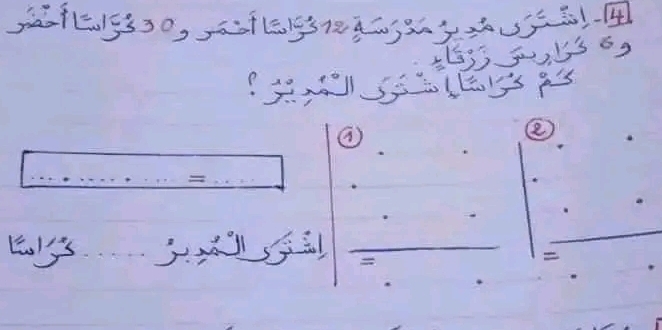 4- اِشْتَرَى مُدِيرُ مَدْرَسَةٍ 12 كُرَّاسًا أَحْمَر و 30 كُرَّاسًا أَخْضَر
و 6 كَرَارِيسَ زَرْقَاءَ.
كَمْ كُرَاسًا اِشْتَرَى الْمُدِيْرُ؟
① ②
............ = ......
= =
اِشْتَرَى الْمُدِيرُ ...... كُرَاسًا